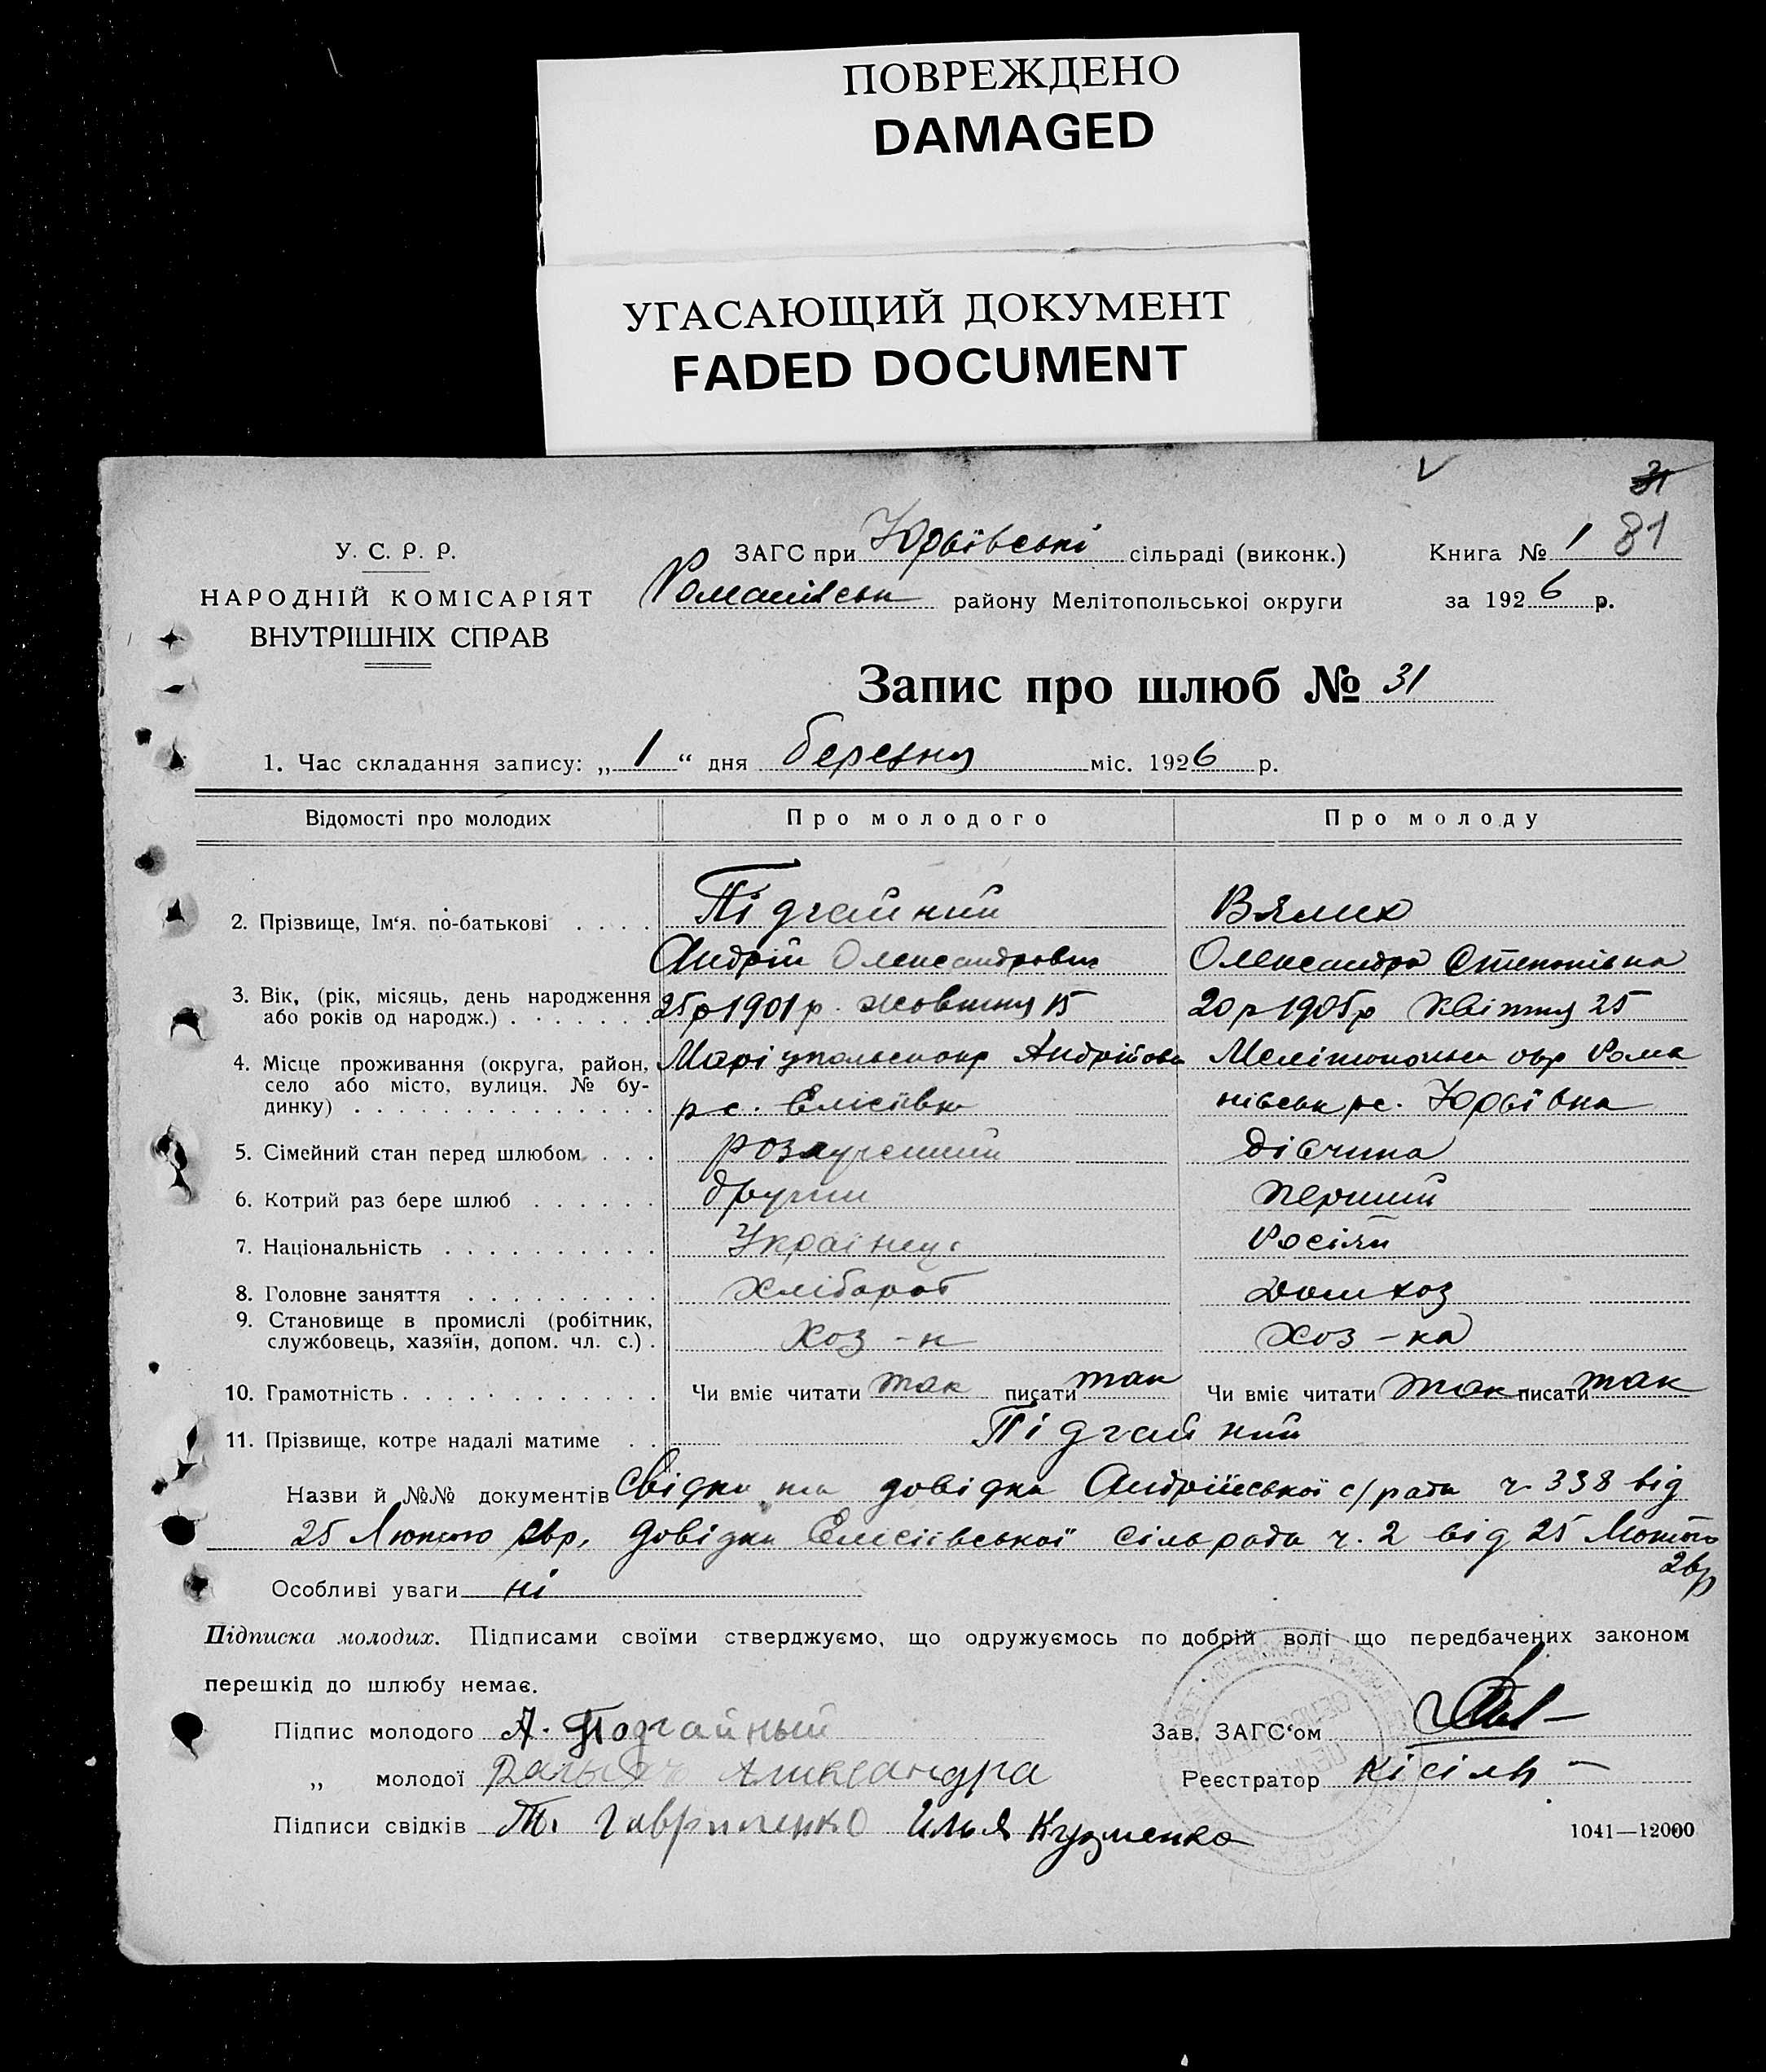 ПОВРЕЖДЕНО
DAMAGED
УГАСАЮЩИЙ ДОКУМЕНТ
FADED DOCUMENT
31
81
У. С. Р. Р.
НАРОДНІЙ КОМІСАРІЯТ
ВНУТРІШНІХ СПРАВ
ЗАГС при Юрьївські сільраді (виконк.)
Романівськ району Мелітопольської округи
Книга № 1
за 1926 р.
Запис про шлюб № 31
1. Час складання запису: „ 1 “ дня березня міс. 1926 р.
Відомості про молодих Про молодого Про молоду
2. Прізвище, Ім‘я. по-батькові . . . . Підгайний Вялих
Андрій Олександрович Олександра Степанівна
3. Вік, (рік, місяць, день народження або років од народж.) . . . . . . . 25 р 1901 р. жовтня 15 20 р 1905 р Квітня 25
4. Місце проживання (округа, район, Маріупольск окр Андрійовс Мелітопольск окр Рома
село або місто, вулиця. № бу-
динку) . . . . . . . . . . . . . . . р с. Елісіївка нівськ р с. Юрьївка
5. Сімейний стан перед шлюбом . . . розлучений дівчина
6. Котрий раз бере шлюб . . . . . . другий перший
7. Національність . . . . . . . . . . Українець Росіян
8. Головне заняття . . . . . . . . . Хлібороб Домхоз
9. Становище в промислі (робітник,
службовець, хазяїн, допом. чл. с.) . Хоз-н Хоз-ка
10. Грамотність . . . . . . . . . . . . Чи вміє читати так писати так Чи вміє читати так писати так
11. Прізвище, котре надалі матиме . . Підгайний
Назви й №№ документів Свідки та довідка Андріївської с/ради ч. 338 від
25 Лютого 26р. довідка Елісіївської сільради ч. 2 від 25 Лютого
26р
Особливі уваги ні
Підписка молодих. Підписами своїми стверджуємо, що одружуємось по добрій волі що передбачених законом
перешкід до шлюбу немає.
Підпис молодого А. Подгайный Зав. ЗАГС‘ом
„ молодої Александра Реєстратор Кісіль
Підписи свідків Т. Гавриленко Илья Кузменко
1041—12000